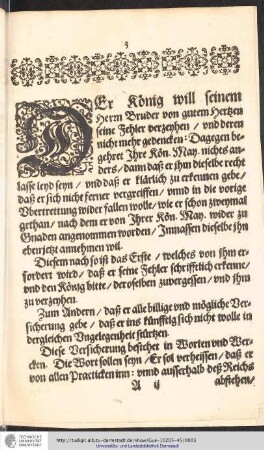 3
DEr König will seinem
Herrn Bruder von gutem Hertzen
seine Fehler verzeyhen / vnd deren
nicht mehr gedencken: Dagegen be-
gehret Ihr Kön. May. nichts an-
ders / dann daß er ihm dieselbe recht
lasse leyd seyn / vnd daß er klärlich zu erkennen gebe /
daß er sich nicht ferner vergreiffen / vnnd in die vorige
Vbertrettung wider fallen wolle / wie er schon zweymal
gethan / nach dem er von Ihrer Kön. May. wider zu
Gnaden angenommen worden / Inmassen dieselbe jhn
eben jetzt annehmen wil.
Diesem nach so ist das Erste / welches von ihm er-
fordert wird / daß er seine Fehler schrifftlich erkenne /
vnd den König bitte / deroselben zuvergessen / vnd jhm
zu verzeyhen.
Zum Andern / daß er alle billige vnd mögliche Ver-
sicherung gebe / daß er ins künfftig sich nicht wolle in
dergleichen Vngelegenheit stürtzen.
Diese Versicherung bestehet in Worten vnd Wer-
cken. Die Wort sollen seyn / Er sol verheissen / daß er
von allen Practicken inn: vnnd ausserhalb deß Reichs
A ij
abstehen /
TECHNISCHE
UNIVERSITÄT
DARMSTADT
http://tudigit.ulb.tu-darmstadt.de/show/Gue-10205-45/0003
Universitäts- und Landesbibliothek Darmstadt